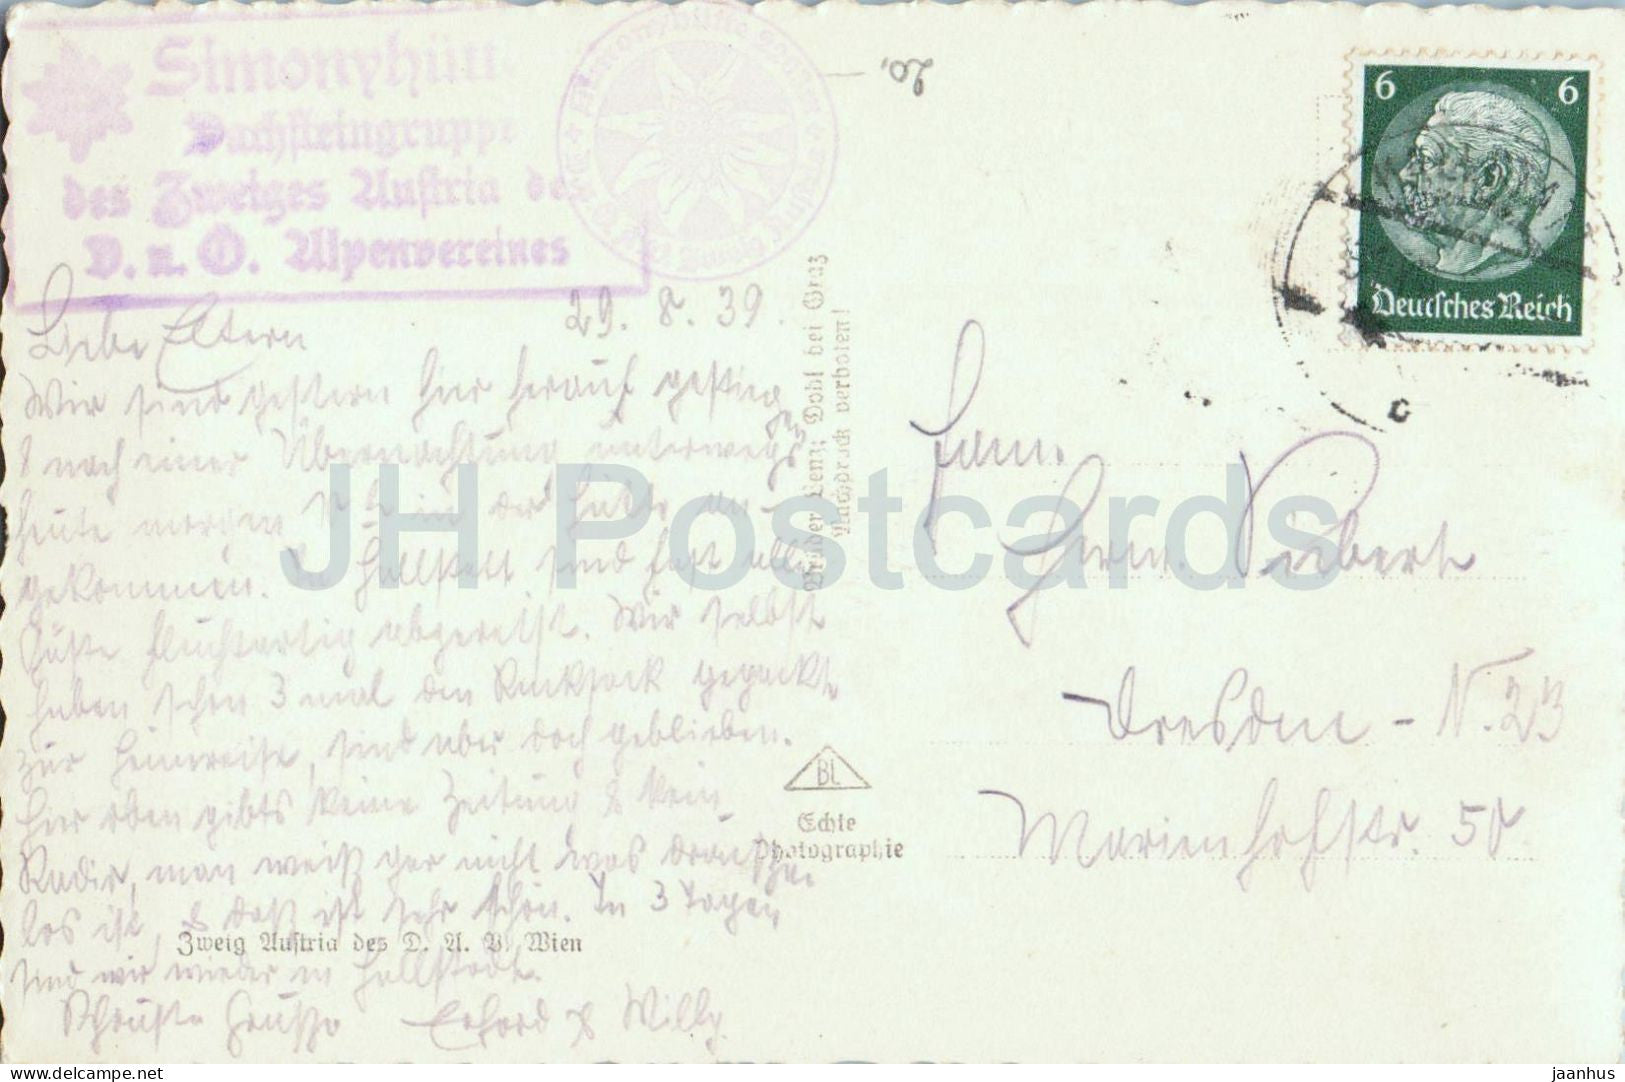 Simonyhütte
Dachsteingruppe
des Zweiges Austria des
D. u. Ö. Alpenvereines
20,
6 6
Deutsches Reich
29. 8. 39.
Liebe Eltern
Wir sind gestern hier herauf gestiegen
& nach einer Übernachtung unterwegs
heute morgen in der Hütte an-
gekommen. In Hallstatt sind fast alle
Gäste fluchtartig abgereist. Wir selbst
haben schon 3 mal den Rucksack gepackt
zur Heimreise, sind aber doch geblieben.
Hier oben gibts keine Zeitung & kein
Radio, man weiß gar nicht was draußen
los ist, & das ist sehr schön. In 3 Tagen
sind wir wieder in Hallstatt.
Grüße Erhard & Willy
Zweig Austria des D. A. V. Wien
Brüder Lenz, Dobl bei Graz
Nachdruck verboten!
BL
Echte
Photographie
Fam.
Herm.
Dresden - N. 23
Marienhofstr. 50
JH Postcards
delcampe.net
jaanhus